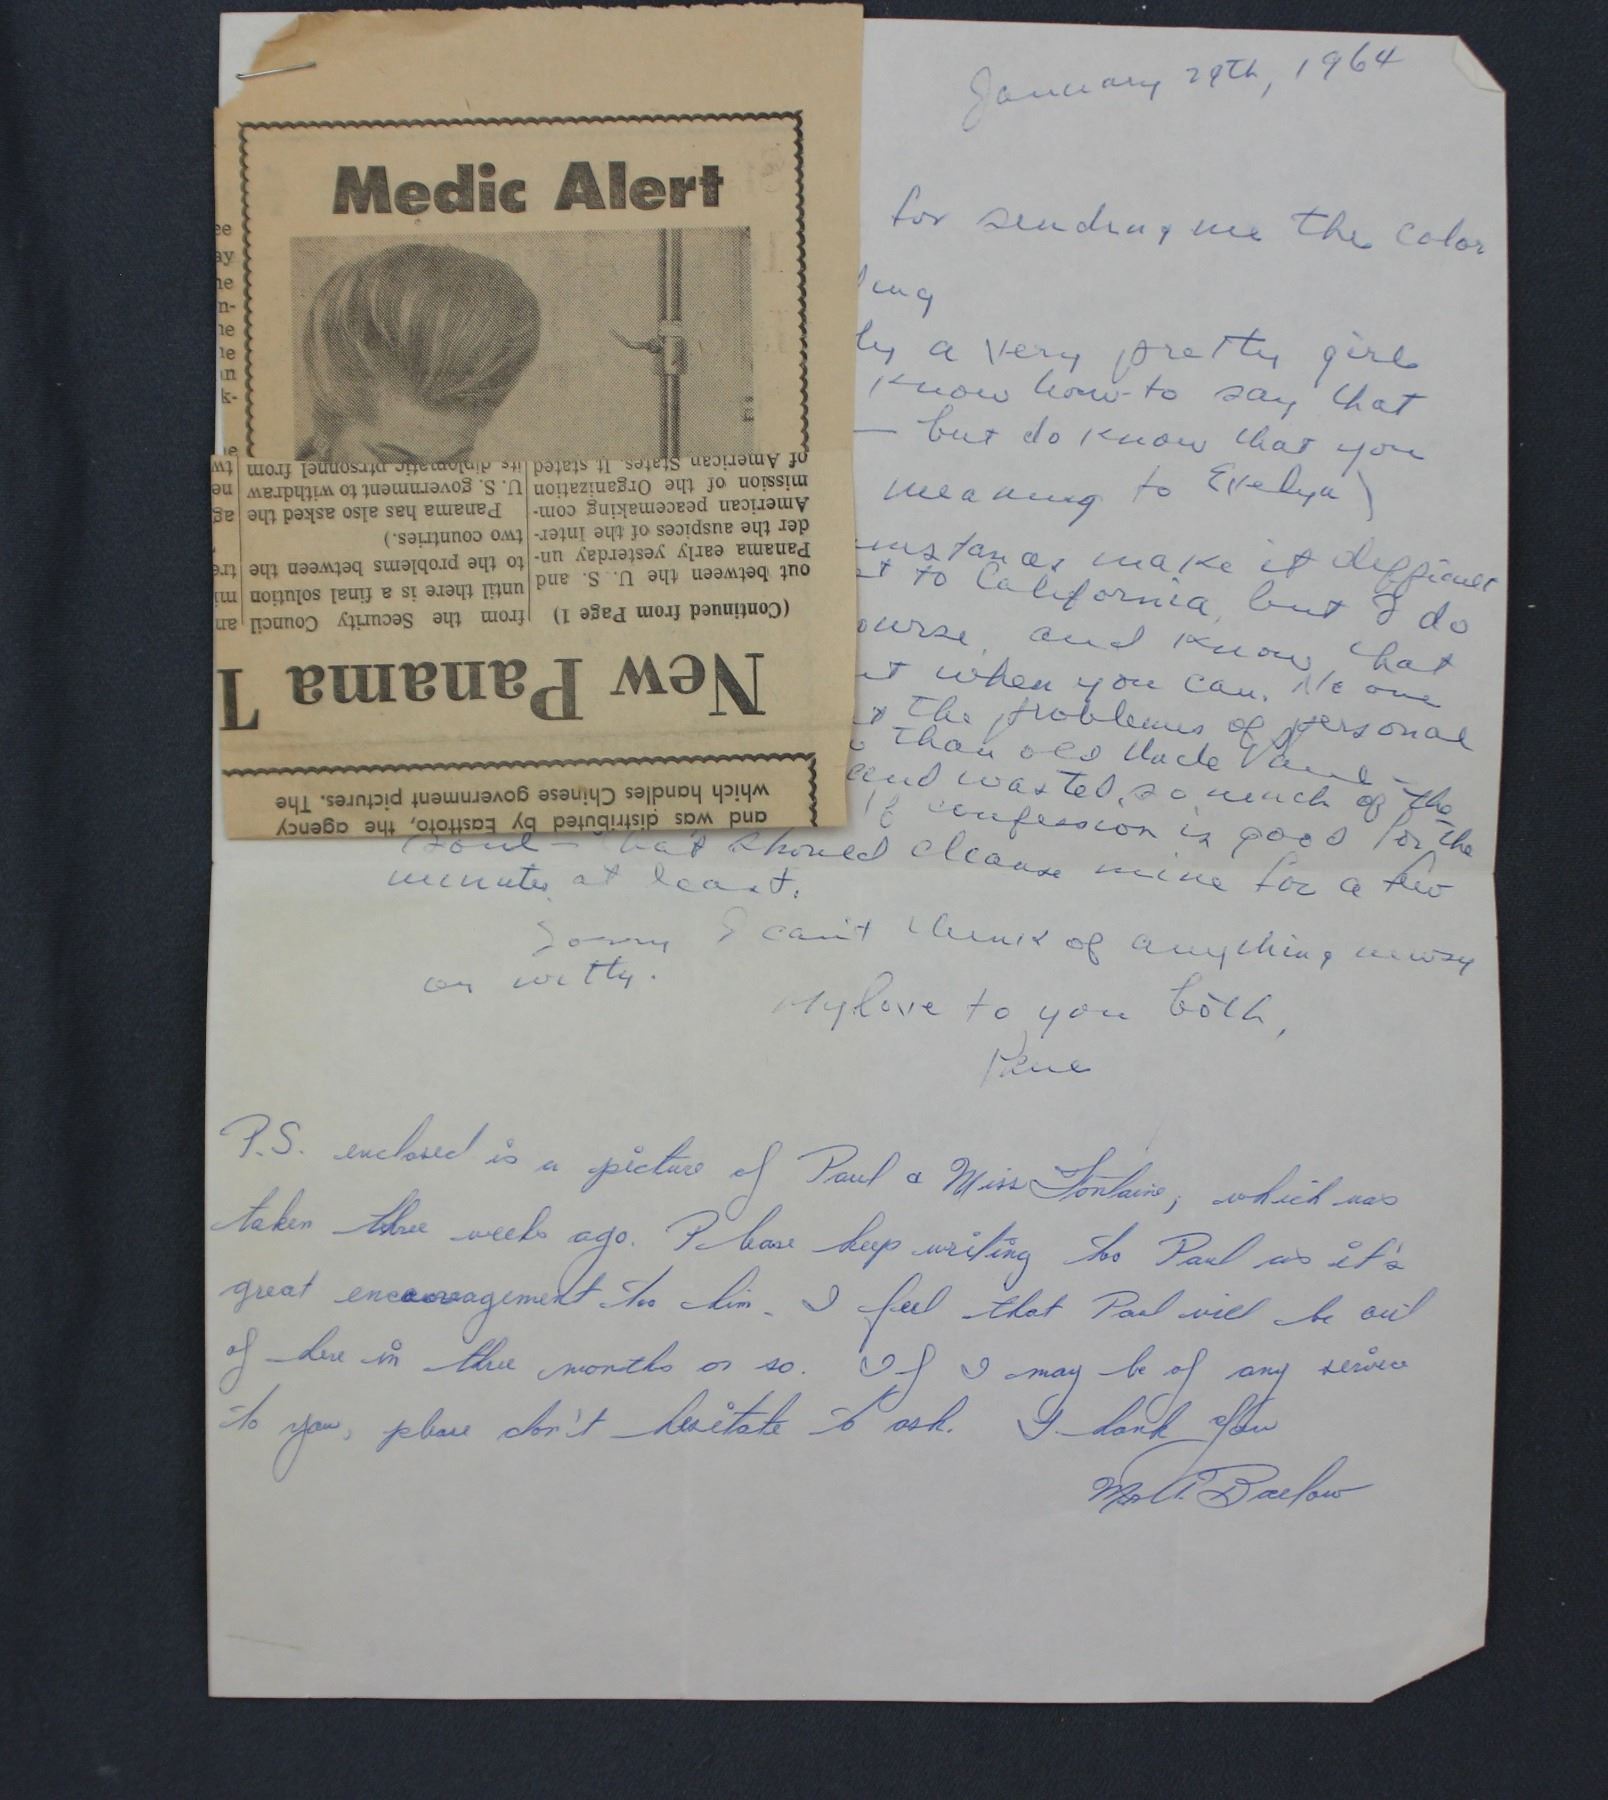 January 29th, 1964
Medic Alert
for sending me the color
a very pretty girl
know how to say that
— but do know that you
meaning to Evelyn)
make it difficult
to California, but I do
and know that
when you can. No one
the problems of personal
than old Uncle Paul -
and wasted so much of the
If confession is good for the
soul - that should cleanse mine for a few
minutes at least.
Sorry I can't think of anything newsy
or witty.
My love to you both,
Paul
P.S. enclosed is a picture of Paul & Miss Fontaine, which was
taken three weeks ago. Please keep writing too Paul as it's
great encouragement too him. I feel that Paul will be out
of here in three months or so. If I may be of any service
to you, please don't hesitate to ask. Thank You
Barlow
ee
ay
ne
n-
ne
ne
an
k-
New Panama T
(Continued from Page 1)
out between the U. S. and
Panama early yesterday un-
der the auspices of the Inter-
American peacemaking com-
mission of the Organization
of American States. It stated
from the Security Council
until there is a final solution
to the problems between the
two countries.)
Panama has also asked the
U. S. government to withdraw
its diplomatic ptrsonnel from
an
mi
tre
ag
ne
tw
and was distributed by Eastfoto, the agency
which handles Chinese government pictures. The